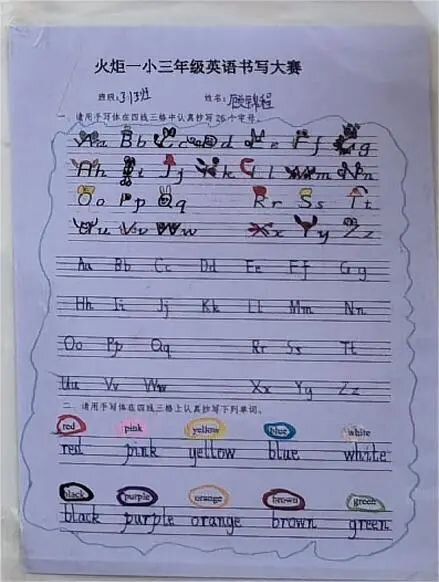 火炬一小三年级英语书写大赛
班级：313班 姓名：
一、请用手写体在四线三格中认真抄写26个字母。
Aa Bb Cc Dd Ee Ff Gg
Hh Ii Jj Kk Ll Mm Nn
Oo Pp Qq Rr Ss Tt
Uu Vv Ww Xx Yy Zz
Aa Bb Cc Dd Ee Ff Gg
Hh Ii Jj Kk Ll Mm Nn
Oo Pp Qq Rr Ss Tt
Uu Vv Ww Xx Yy Zz
二、请用手写体在四线三格上认真抄写下列单词。
red pink yellow blue white
red pink yellow blue white
black purple orange brown green
black purple orange brown green